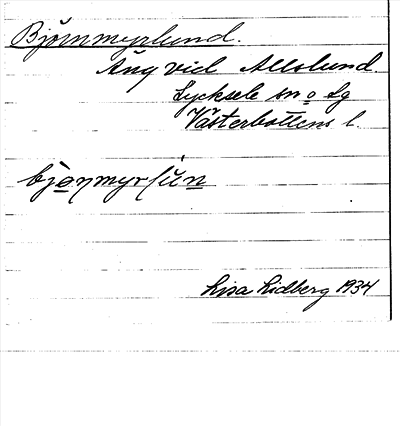 Björnmyrlund.
Äng vid Allslund
Lycksele sn o Lg
Västerbottens l.
Lisa Lidberg 1934